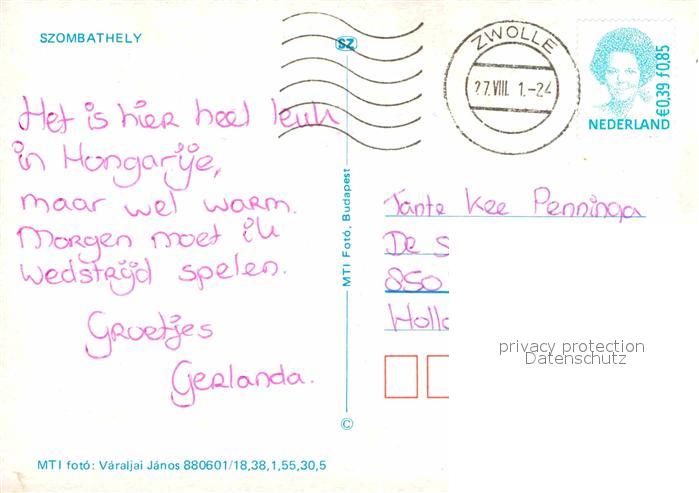 SZOMBATHELY
SZ
ZWOLLE
27.VIII. 1.-24
€0,39 f0,85
NEDERLAND
Het is hier heel leuk
in Hongarije,
maar wel warm.
Morgen moet ik
wedstrijd spelen.
Groetjes
Gerlanda.
MTI Fotó, Budapest
Tante Kee Penninga
De S
850
Hollo
privacy protection
Datenschutz
©
MTI fotó: Váraljai János 880601/18,38,1,55,30,5